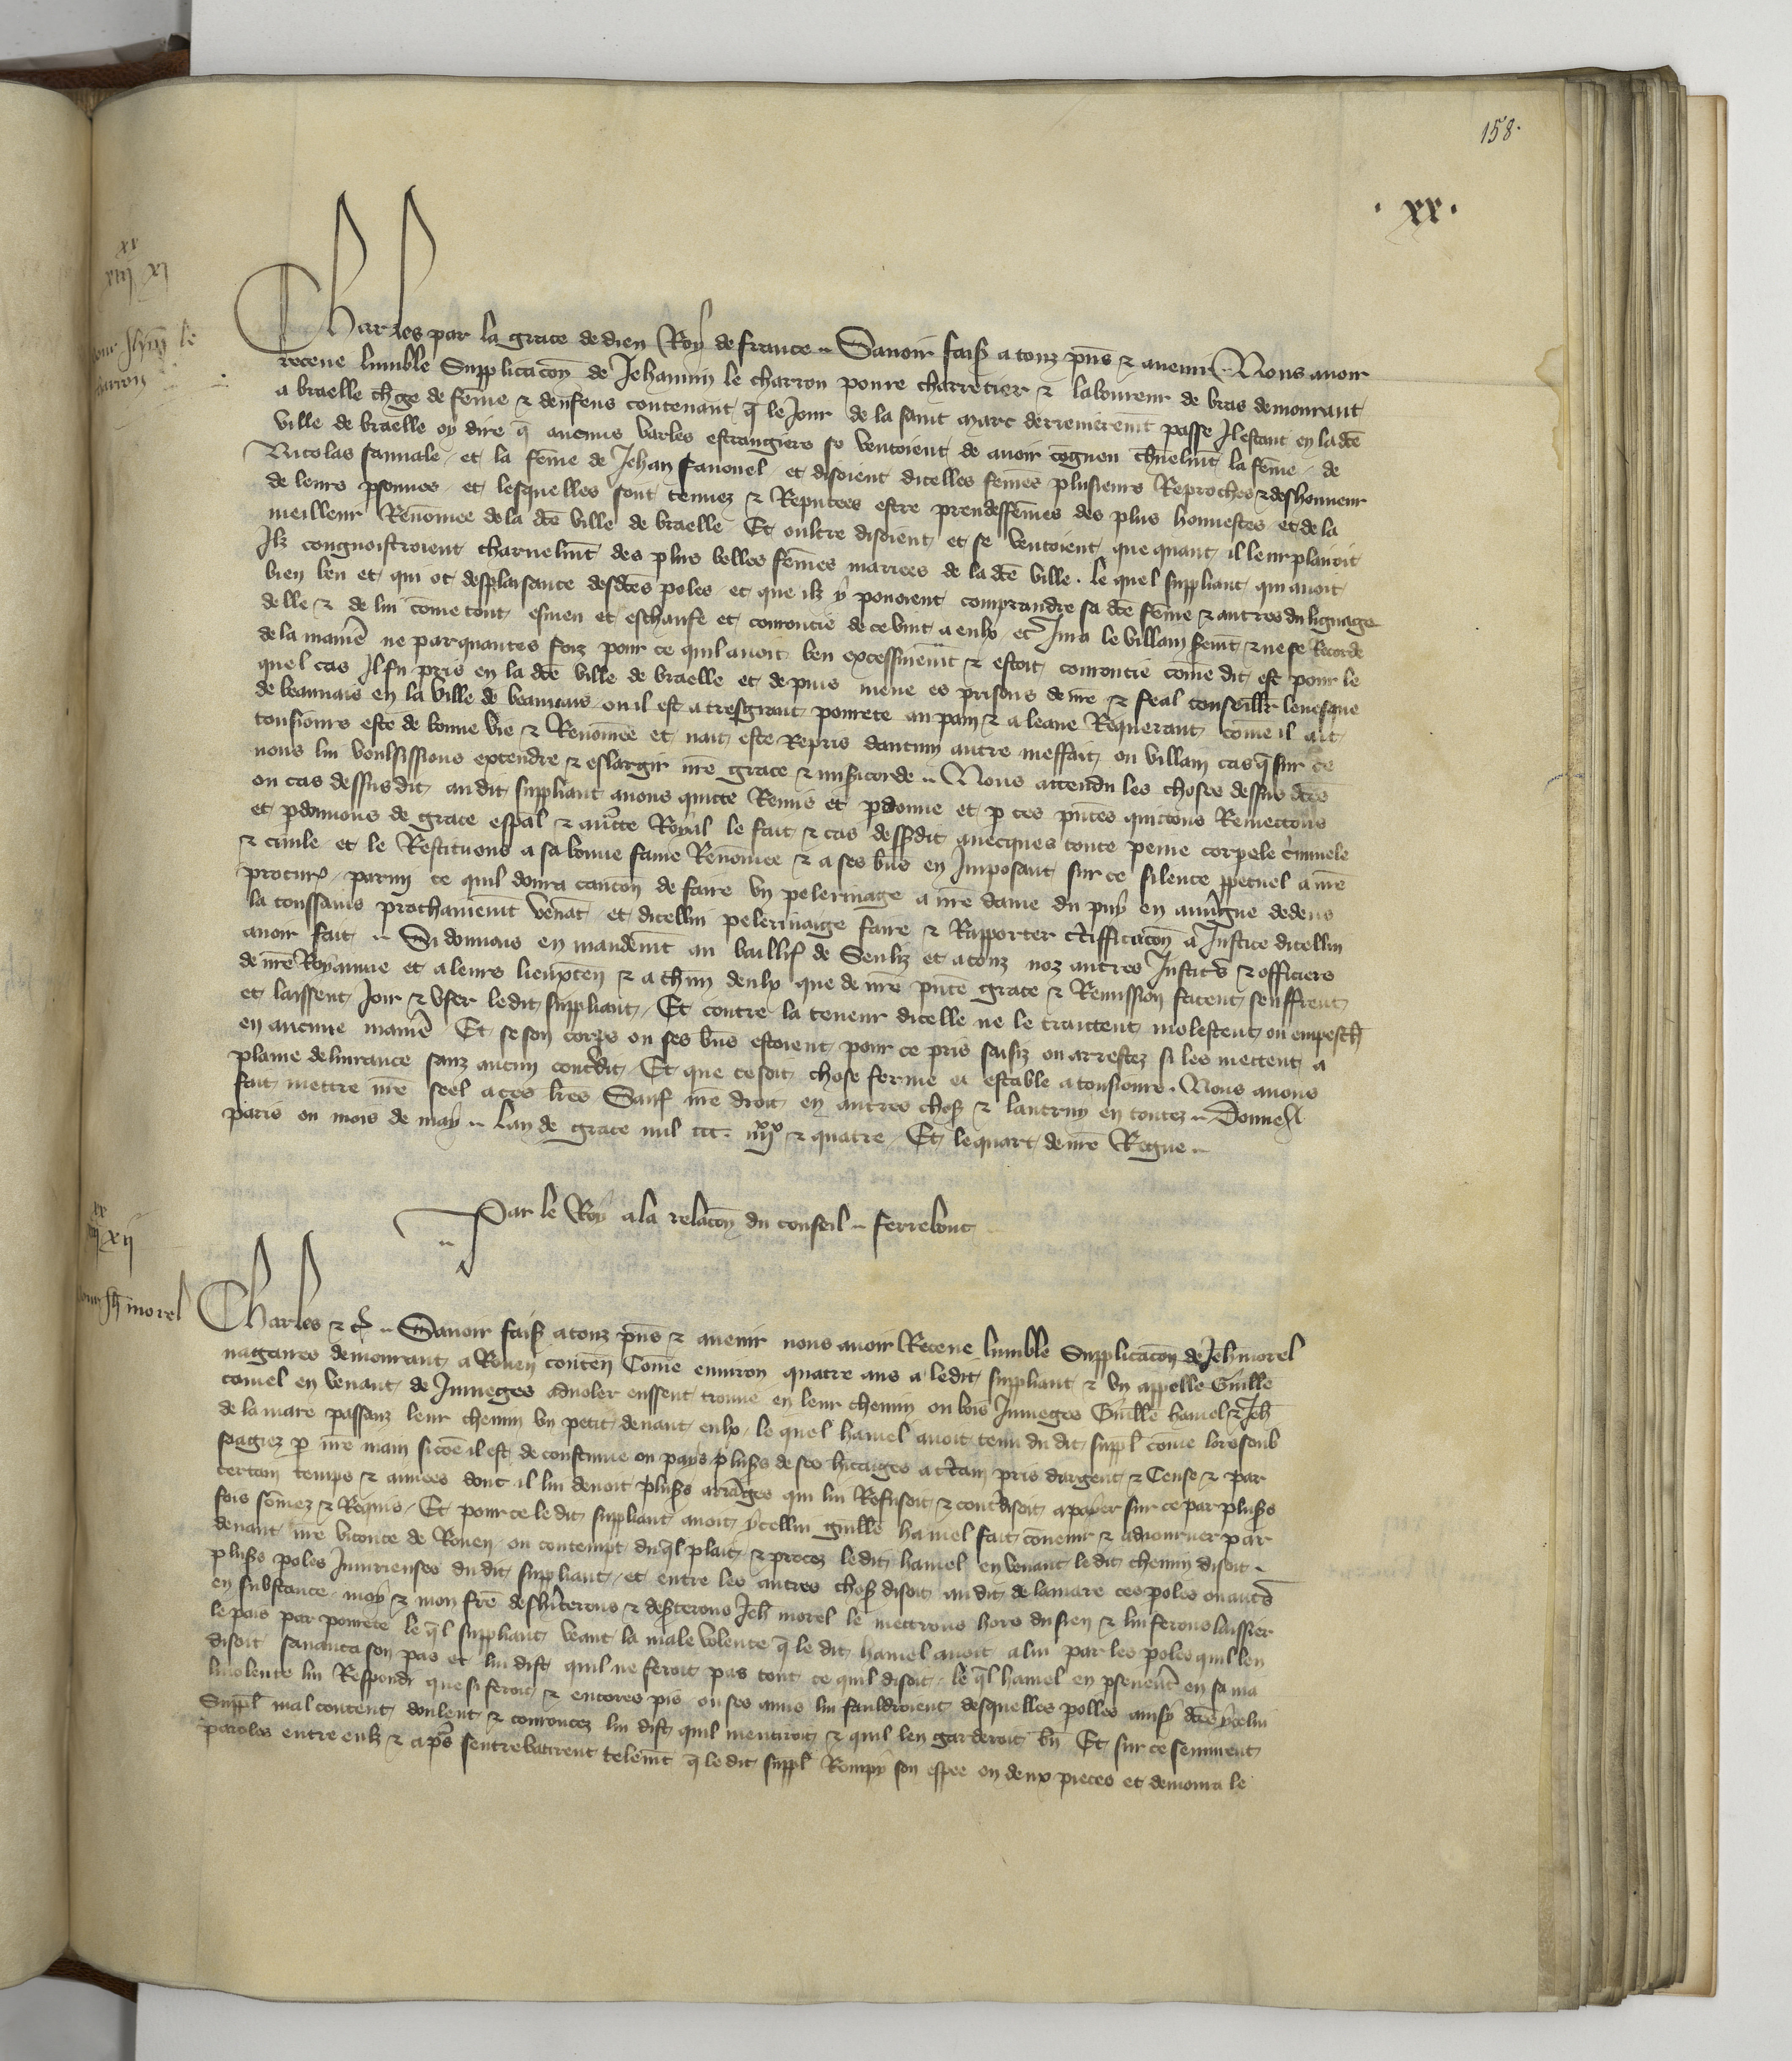 158.
. xx .
xx
iiii xi
pour Jehānin le
charron
Charles par la grace de dieu Roy de france .. Savoir faisō a touz p̄ns & avenir .. Nous avoir
receue lumble Supplicacōn de Jehannin le charron povre charretier & laboureur de bras demourant
a braelle ch̄ge de fēme & denfens contenant q̄ le Jour de la saint marc derrenieremt̄ passe Il estant en la dc̄e
ville de braelle oy dire q̄ aucuns varles estrangiers se ventoient de avoir cōgneu ch̄nelmt̄ la fēme de
Nicolas sauvale et la fēme de Jehan fanouel et disoient dicelles fēmes plusieurs Reproches & deshonneur
de leurs psonnes et lesquelles sont tenuez & Reputees estre preudesfēmes des plus honnestes et de la
meilleur Renōmee de la dc̄e ville de braelle Et oultre disoient et se ventoient que quant il leur plairoit
Ilz congnoistroient charnelmt̄ des plus belles fēmes mariees de la dc̄e ville . le quel suppliant qui avoit
bien beu et qui ot desplaisance desdc̄es poles et que ilz y povoient comprandre sa dc̄e fēme & autres du lignage
delle & de lui cōme tout esmeu et eschaufe et courroucie de ce vint a eulx et Jura le villain serm̄t & ne se Recorde
de la manie᷒ ne par quantes foiz pour ce quil avoit beu excessivemt̄ & estoit courroucie cōme dit est pour le
quel cas Il fu pris en la dc̄e ville de braelle et depuis mene es prisons de nr̄e & feal conseillr̄ levesque
de beauvais en la ville de beauvais ou il est a tresgrant povrete au pain & a leaue Requerant cōme il ait
tousiours este de bonne vie & Renōmee et nait este Repris daucun autre meffait ou villain cas q̄ sur ce
nous lui voulsissions extendre & eslargir nr̄e grace & misicorde .. Nous attendu les choses dessus dc̄es
ou cas dessusdit audit suppliant avons quicte Remis et pdonne et p ces pn̄tes quictons Remectons
et pdonnons de grace esp̄al & auctō̄te Royal le fait & cas dessusdit avecques toute peine corpele c̄minele
& civile et le Restituons a sa bonne fame Renōmee & a ses bn̄s en Imposant sur ce silence ppetuel a nr̄e
procur̄ parmi ce quil donra caucōn de faire un pelerinage a nr̄e dame du puy en auv̄gne dedens
la toussains prochainemt̄ venāt et dicellui pelerinaige faire & Rapporter c̄tifficacōn a Justice dicellui
avoir fait .. Si donnons en mandemt̄ au baillif de Senliz et a touz noz autres Justic̄s & officiers
de nr̄e Royaume et a leurs lieuxten̄ & a ch̄un deulx que de nr̄e pn̄te grace & Remission facent seuffrent
et laissent Joir & user ledit suppliant Et contre la teneur dicelle ne le traictent molestent ou empesch̄
en aucune manie᷒ Et se son corps ou ses bn̄s estoient pour ce pris saisiz ou arrestez si les mettent a
plaine delivrance sanz aucun cont̄dit Et que ce soit chose ferme et estable a tousiours . Nous avons
fait mettre nr̄e seel a ces lr̄es Sauf nr̄e droit en autres chosō & lautruy en toutez .. Donne a
paris ou mois de may .. Lan de grace mil ccc . iiiixx & quatre Et le quart de nr̄e Regne ..
Par le Roy a la relacōn du conseil .. ferrebouc
xx
iiii xii
pour Jeh̄ morel
Charles & c̄ .. Savoir faisō a touz p̄ns & avenir nous avoir Receue lumble Supplicacōn de Jeh̄ morel
nagaires demourant a Rouen conten̄ Cōme environ quatre ans a ledit suppliant & un appelle Guillē
camel en venant de Jumeges aduoler eussent trouve en leur chemin ou bois Jumeges Guillē hamel & Jeh̄
de la mare passanz leur chemin un petit devant eulx le quel hamel avoit tenu du dit suppl̄ cōme lors soub
seagiez p nr̄e main sicōe il est de coustume ou pays plusō de ses hitaiges a c̄tain pris dargent & Cense & par
certain temps & annees dont il lui devoit plusō arrāges qui lui Refusoit & cont̄disoit a paier sur ce par plusō
fois sōmez & Requis Et pour ce le dit suppliant avoit ycellui guillē hamel fait cōvenir & adiourner par
devant nr̄e viconte de Rouen ou contempt du q̄l plait & procez ledit hamel en venant le dit chemin disoit
plusō poles Injurieuses du dit suppliant et entre les autres chosō disoit au dit de la mare ces poles ou autēs
en substance moy & mon frē desh̄iterons & des̄terons Jeh̄ morel le mettrons hors du sien & lui ferons laissier
le pais par povrete le q̄l suppliant veant la male volente q̄ le dit hamel avoit a lui par les poles quil len
disoit savanca son pas et lui dist quil ne feroit pas tout ce quil disoit le q̄l hamel en pseverāt en sa ma
livolente lui Respondi que si feroit & encores pis ou ses amis lui fauldroient desquelles polles ainsy dc̄es ycelui
Suppl̄ mal content doulent & courroucez lui dist quil mentiroit & quil len garderoit bn̄ Et sur ce semurent
paroles entre eulz & apr̄s sentrebatirent telemt̄ q̄ le dit suppl̄ Rompy son espee en deux pieces et demoura le